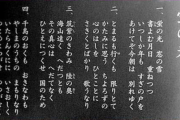 一、蛍の光 窓の雪
書よむ月日 重ねつつ
いつしか年も すぎの戸を
あけてぞ今朝は 別れゆく
二、とまるも行くも 限りとて
かたみに思う ちよろずの
心のはしを ひとことに
さきくとばかり 歌うなり
三、筑紫のきわみ 陸の奥
海山遠く へだつとも
その真心は へだてなく
ひとえにつくせ 国のため
四、千島のおくも おきなわも
やしまのうちの まもりなり
いたらんくにに いさおしく